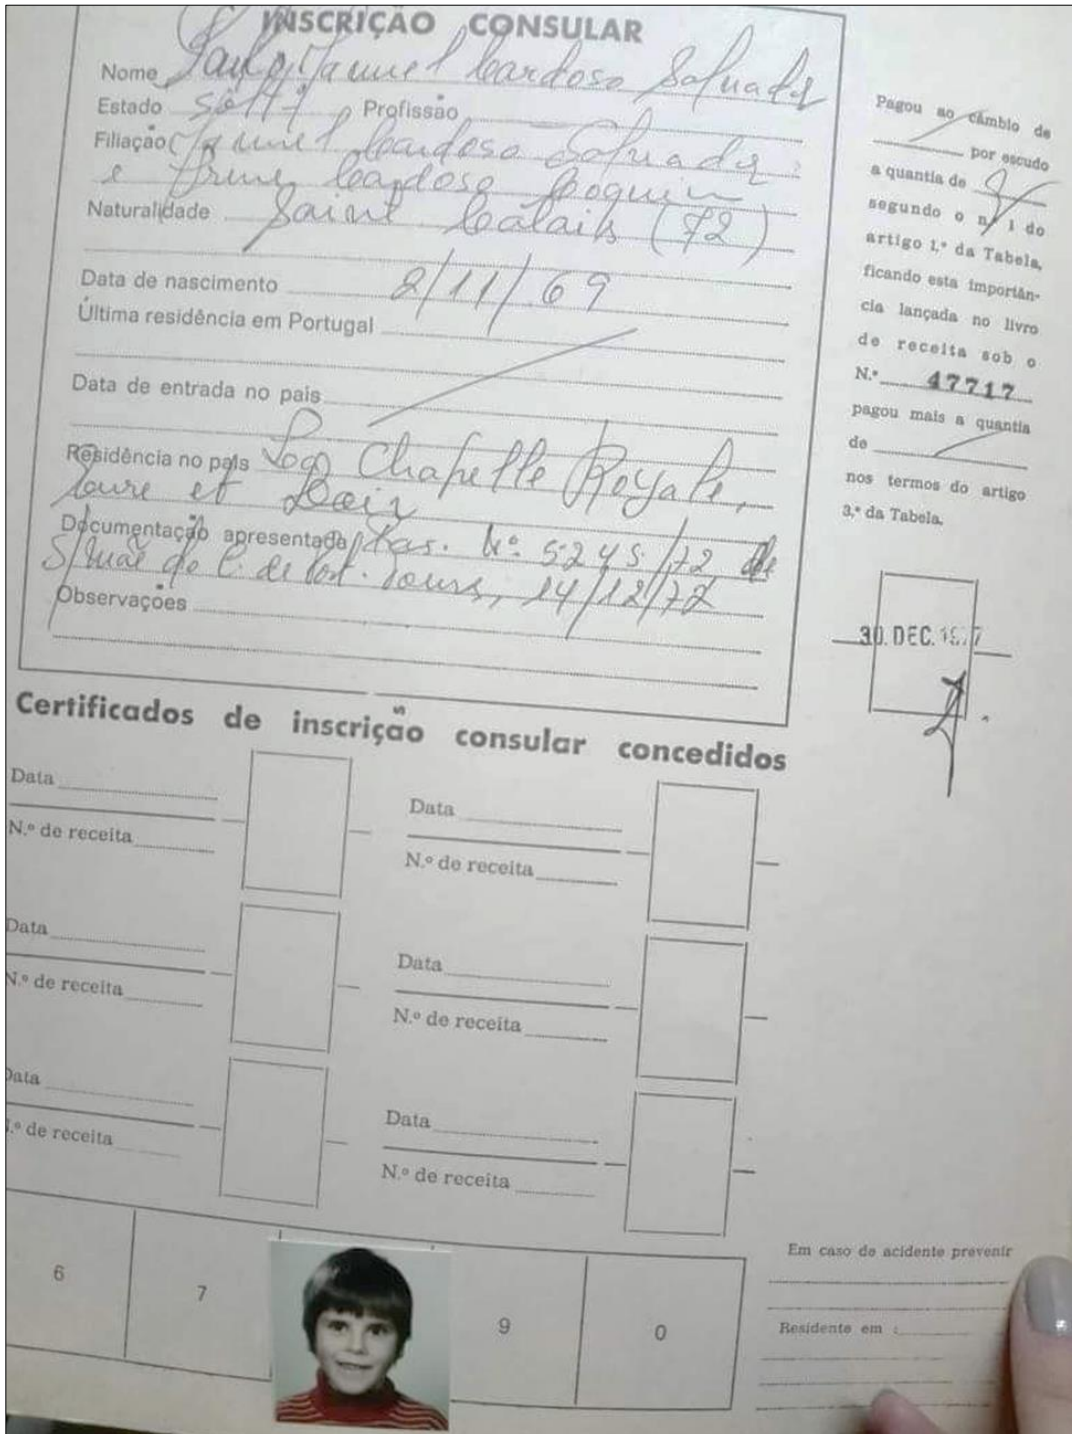 INSCRIÇÃO CONSULAR
Nome Paulo Manuel Cardoso Salvador
Estado Solt. Profissão
Filiação Manuel Cardoso Salvador
e Cardoso
Naturalidade Saint Calais (72)
Data de nascimento 2/11/69
Última residência em Portugal
Data de entrada no país
Residência no país Chapelle Royale,
et Loir
Documentação apresentada Pas. Nº 5245/72 de
S/mãe do C. de Port. Tours, 14/12/72
Observações
Pagou ao câmbio de
por escudo
a quantia de
segundo o n.º 1 do
artigo 1.º da Tabela,
ficando esta importân-
cia lançada no livro
de receita sob o
N.º 47717
pagou mais a quantia
de
nos termos do artigo
3.º da Tabela.
30. DEC. 1977
Certificados de inscrição consular concedidos
Data
N.º de receita
Data
N.º de receita
Data
N.º de receita
Data
N.º de receita
Data
N.º de receita
Data
N.º de receita
6 7 9 0
Em caso de acidente prevenir
Residente em :